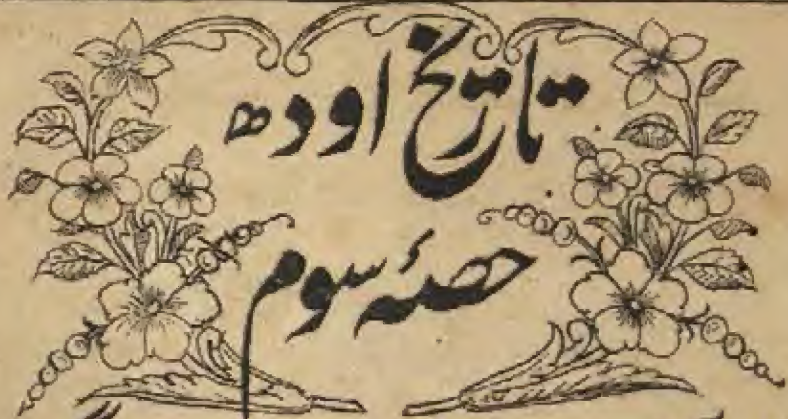 تاریخ اودھ
حصۂ سوم